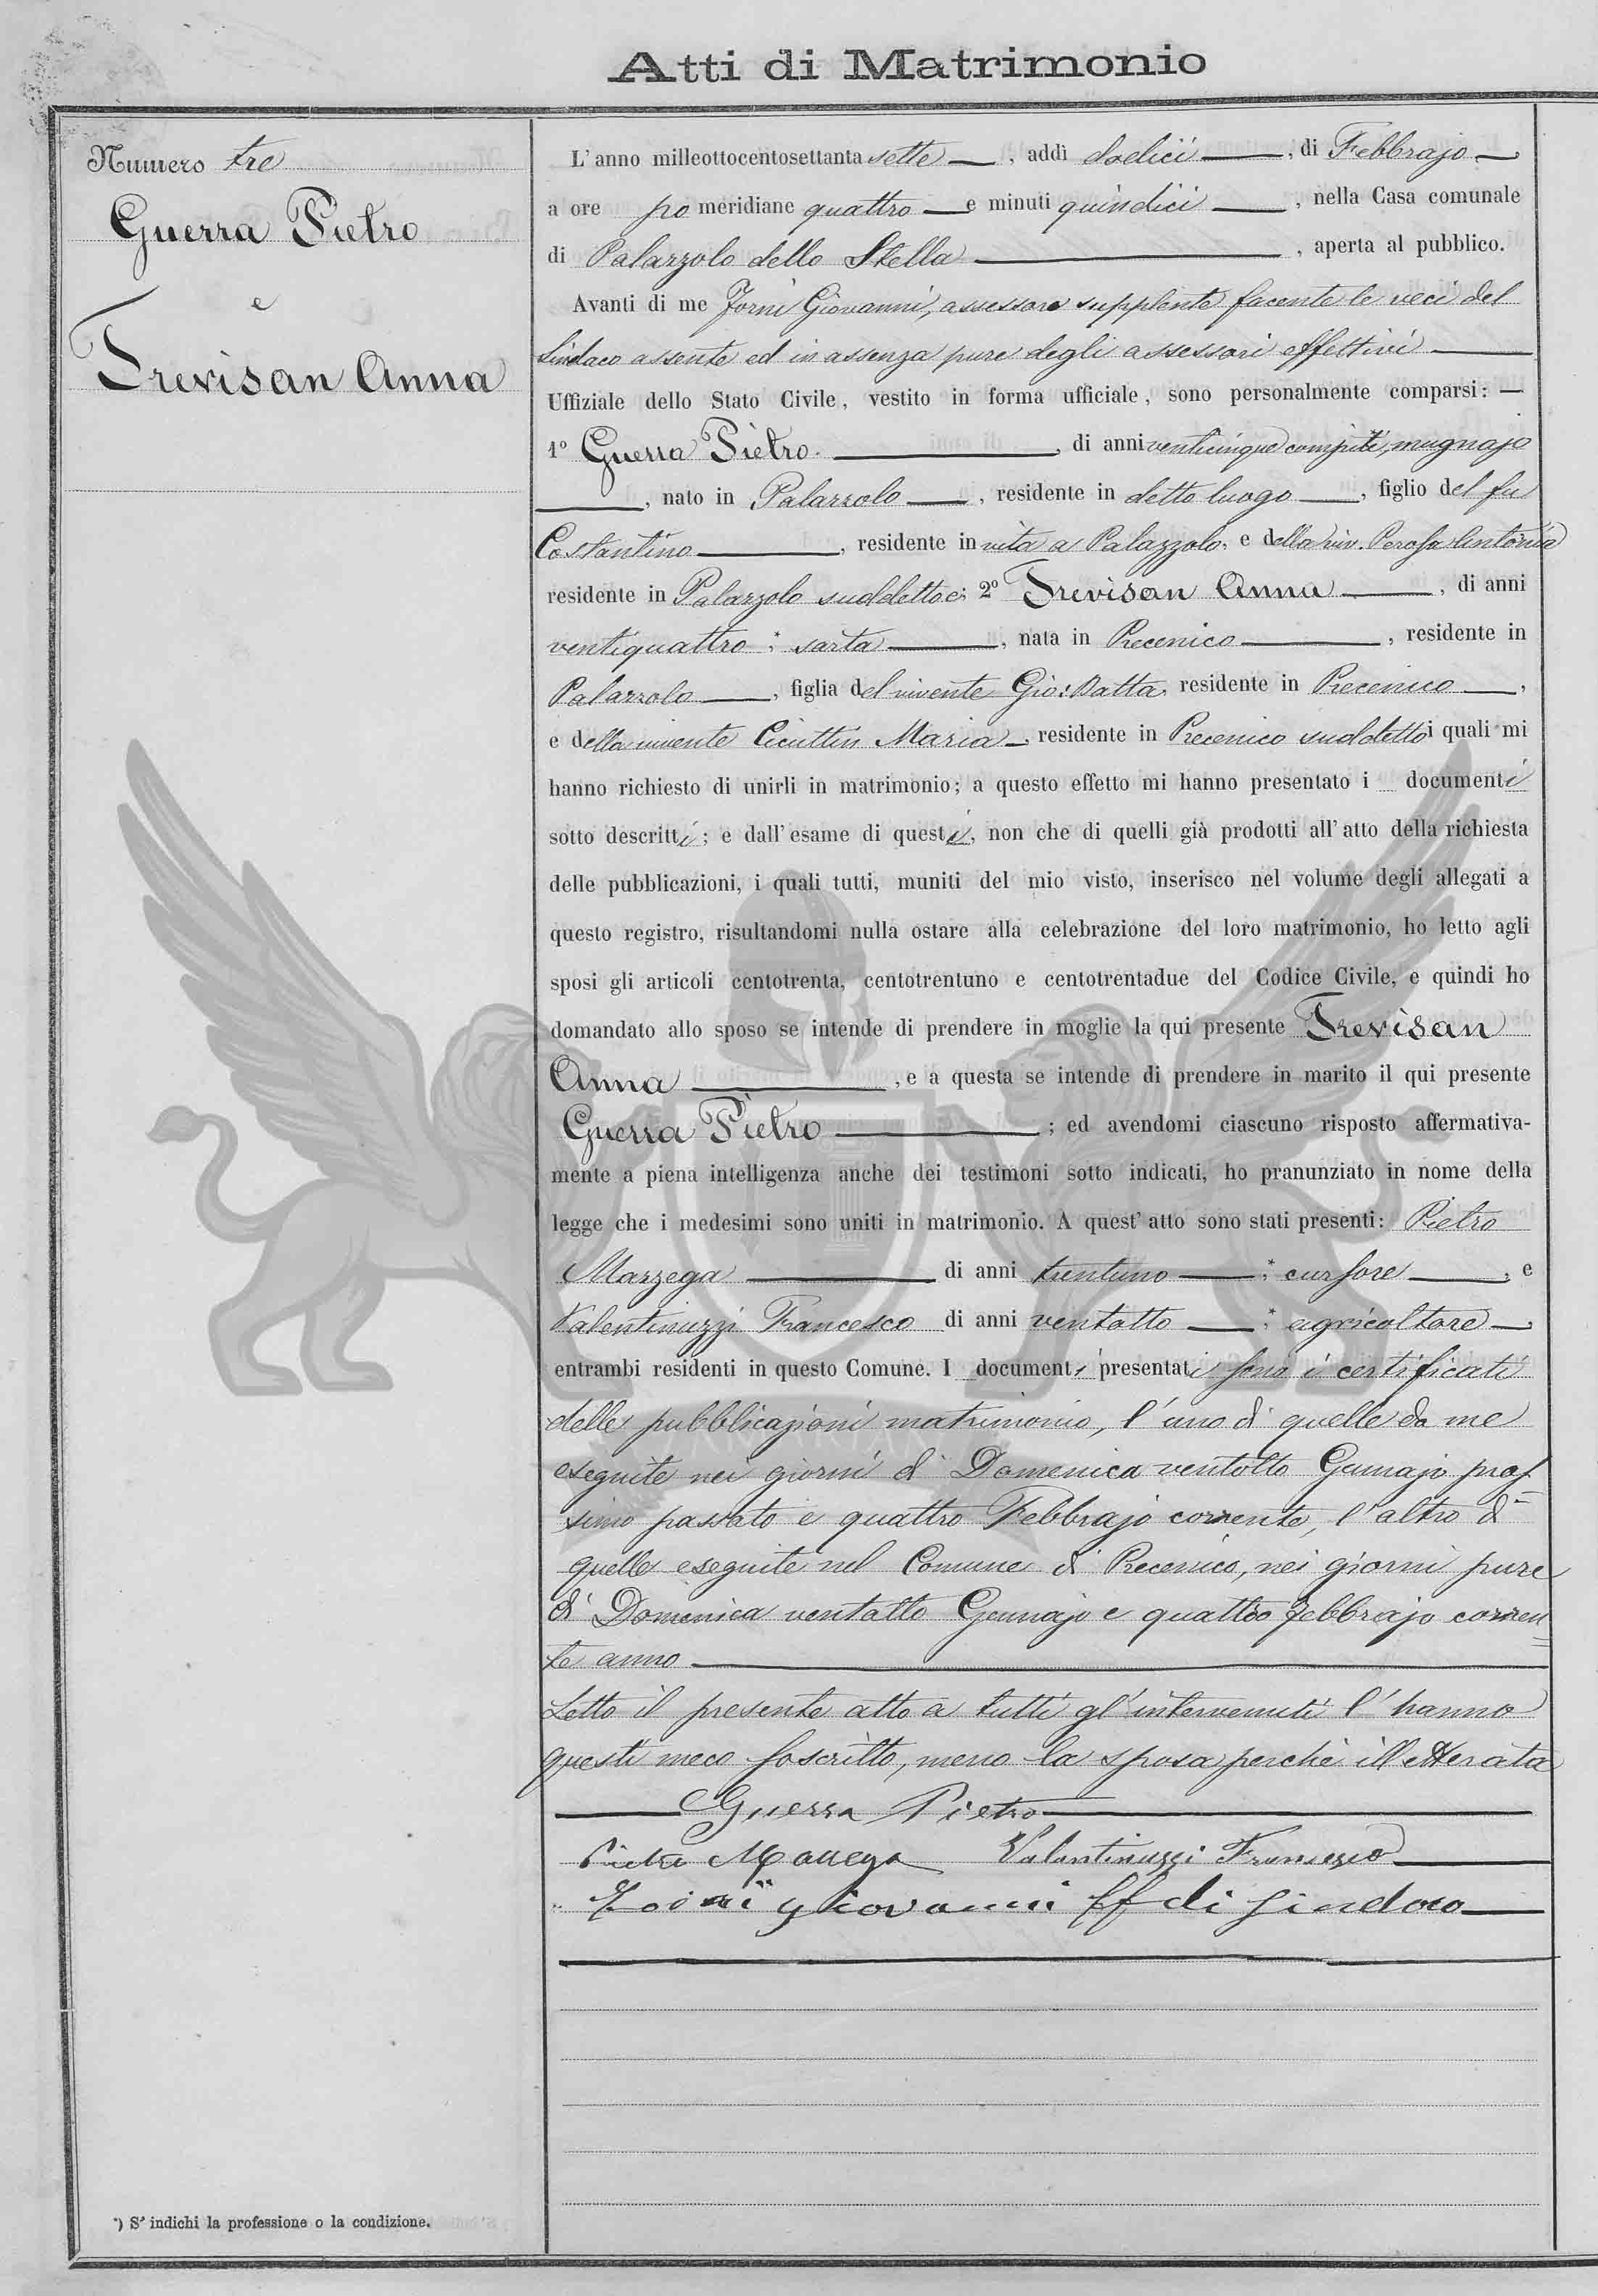 Atti di Matrimonio
Numero tre
Guerra Pietro
e
Trevisan Anna
L'anno milleottocentosettanta sette, addì dodici, di Febbrajo
a ore pomeridiane quattro e minuti quindici, nella Casa comunale
di Palazzolo dello Stella, aperta al pubblico.
Avanti di me Zorni Giovanni, assessore supplente facente le veci del
Sindaco assente ed in assenza pure degli assessori effettivi
Uffiziale dello Stato Civile, vestito in forma ufficiale, sono personalmente comparsi: —
1º Guerra Pietro, di anni venticinque compiti, mugnajo
, nato in Palazzolo, residente in detto luogo, figlio del fu
Costantino, residente in vita a Palazzolo, e della viv. Perosa Antonia
residente in Palazzolo suddetto e; 2º Trevisan Anna, di anni
ventiquattro; * sarta, nata in Precenico, residente in
Palazzolo, figlia del vivente Gio: Batta, residente in Precenico,
e della vivente Cicuttin Maria, residente in Precenico suddetto i quali mi
hanno richiesto di unirli in matrimonio; a questo effetto mi hanno presentato i documenti
sotto descritti; e dall'esame di questi, non che di quelli già prodotti all'atto della richiesta
delle pubblicazioni, i quali tutti, muniti del mio visto, inserisco nel volume degli allegati a
questo registro, risultandomi nulla ostare alla celebrazione del loro matrimonio, ho letto agli
sposi gli articoli centotrenta, centotrentuno e centotrentadue del Codice Civile, e quindi ho
domandato allo sposo se intende di prendere in moglie la qui presente Trevisan
Anna, e a questa se intende di prendere in marito il qui presente
Guerra Pietro; ed avendomi ciascuno risposto affermativa-
mente a piena intelligenza anche dei testimoni sotto indicati, ho pranunziato in nome della
legge che i medesimi sono uniti in matrimonio. A quest'atto sono stati presenti: Pietro
Mazzega di anni trentuno; * cursore, e
Valentinuzzi Francesco di anni ventotto; * agricoltore,
entrambi residenti in questo Comune. I documenti presentati sono i certificati
delle pubblicazioni matrimonio, l'uno di quelle da me
eseguite nei giorni di Domenica ventotto Gennajo pros
simo passato e quattro Febbrajo corrente, l'altro di
quelle eseguite nel Comune di Precenico, nei giorni pure
di Domenica ventotto Gennajo e quattro febbrajo corren
te anno
Letto il presente atto a tutti gl'intervenuti l'hanno
questi meco soscritto, meno la sposa perchè illetterata
Guerra Pietro
Pietro Mazzega Valentinuzzi Francesco
Zorni Giovanni ff di Sindaco
*) S'indichi la professione o la condizione.